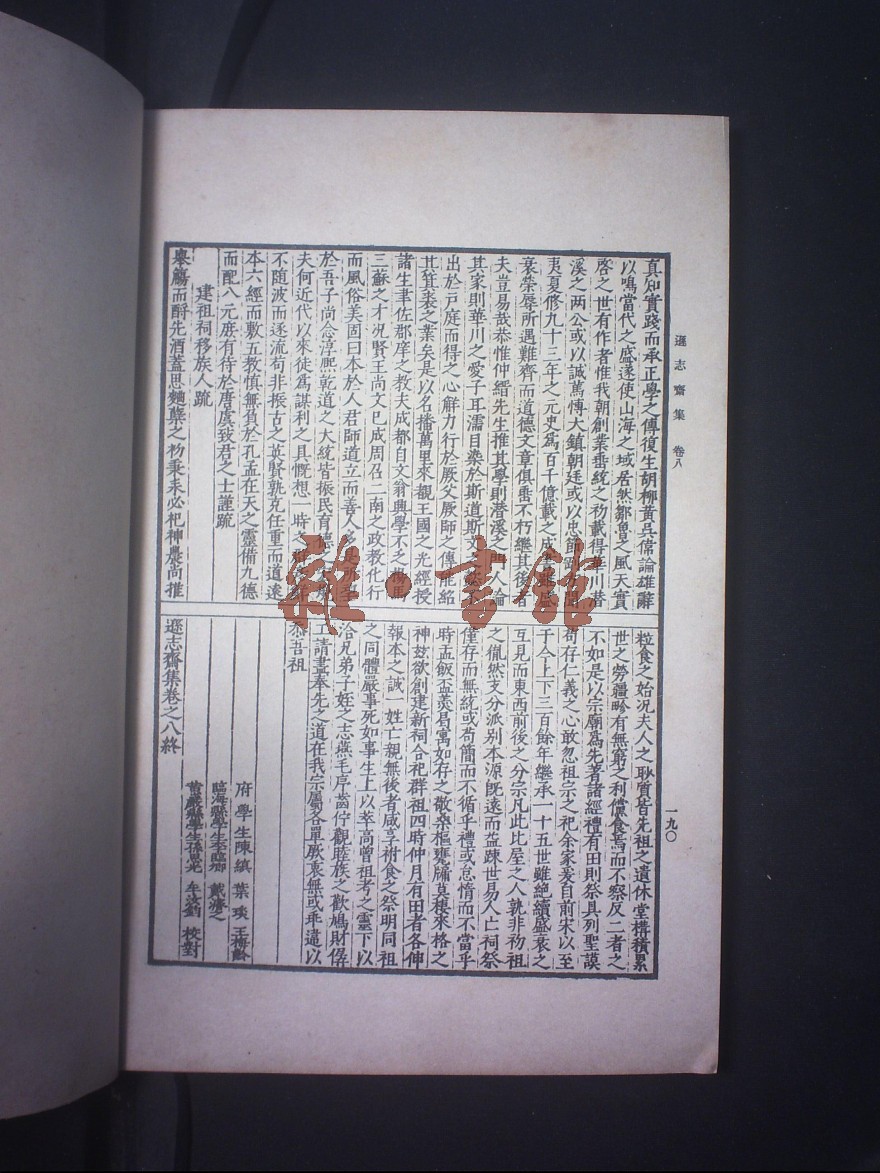 遜志齋集 卷八
真知實踐而承正學之傳復生胡柳黃吳偉論雄辭
以鳴當代之盛遂使山海之域居然鄒魯之風天實
啓之世有作者惟我朝創業垂統之初載得華川潜
溪之兩公或以誠萬愽大鎮朝廷或以忠節
夷夏修九十三年之元史爲百千億載之成
衰榮辱所遇難齊而道德文章俱垂不朽繼其後者
夫豈易哉恭惟仲縉先生推其學則潜溪之門人論
其家則華川之愛子耳濡目染於斯道斯文之
出於戸庭而得之心觧力行於厥父厥師之傳惟紹
其箕裘之業矣是以名播萬里來觀王國之光經授
諸生聿佐郡庠之教夫成都自文翁興學不乏揚馬
三蘇之才况賢王尚文已成周召二南之政教化行
而風俗美固曰本於人君師道立而善人多
於吾子尚念淳熈乾道之大統皆振民育德
夫何近代以來徒爲謀利之具慨想一時之
不随波而逐流苟非振古之英賢孰克任重而道遠
本六經而敷五教慎無負於孔孟在天之靈備九德
而配八元庶有待於唐虞致君之士謹疏
建祖祠移族人疏
舉觴而酹先酒蓋思麵櫱之初秉耒必祀神農尚推
粒食之始况夫人之耿質皆先祖之遺休堂構積累
世之勞疆畛有無窮之利儻食焉而不察反二者之
不如是以宗廟爲先著諸經禮有田則祭具列聖謨
苟存仁義之心敢忽祖宗之祀余家爰自前宋以至
于今上下三百餘年繼承一十五世雖絶續盛衰之
互見而東西前後之分宗凡此比屋之人孰非初祖
之㣧然支分派别本源旣遠而益踈世易人亡祠祭
僅存而無統或苟簡而不循乎禮或怠惰而不當乎
時盂飯盃羮曷寓如存之敬桑樞甕牖莫棲來格之
神玆欲創建新祠合祀群祖四時仲月有田者各伸
報本之誠一姓亡親無後者咸享祔食之祭明同祖
之同體嚴事死如事生上以萃高曾祖考之靈下以
洽凡弟子姪之志燕毛序齒佇觀睦族之歡鳩財僝
工請盡奉先之道在我宗屬各單厥衷無或乖違以
忝吾祖
府學生陳縝 葉琰 王梅齡
臨海縣學生李臨鄉 戴濟之
黄巖縣學生孫思光 牟汝劉 校對
遜志齋集卷之八終
一九〇
雜·書館